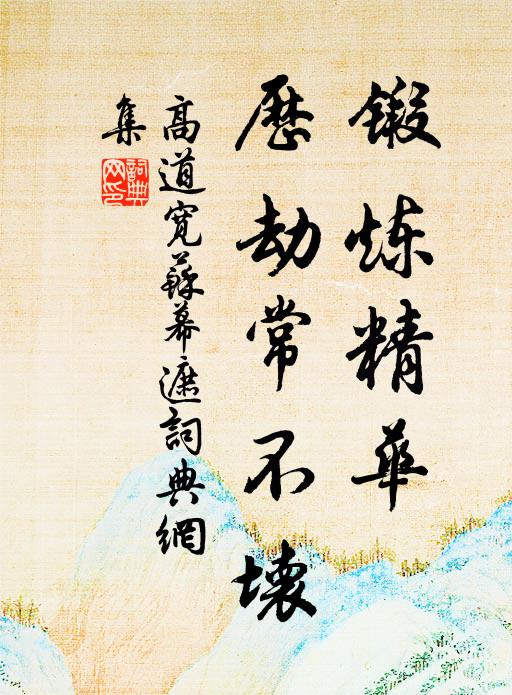 锻炼精华
历劫常不壊
高道宽苏幕遮词典网
集
词典
网印